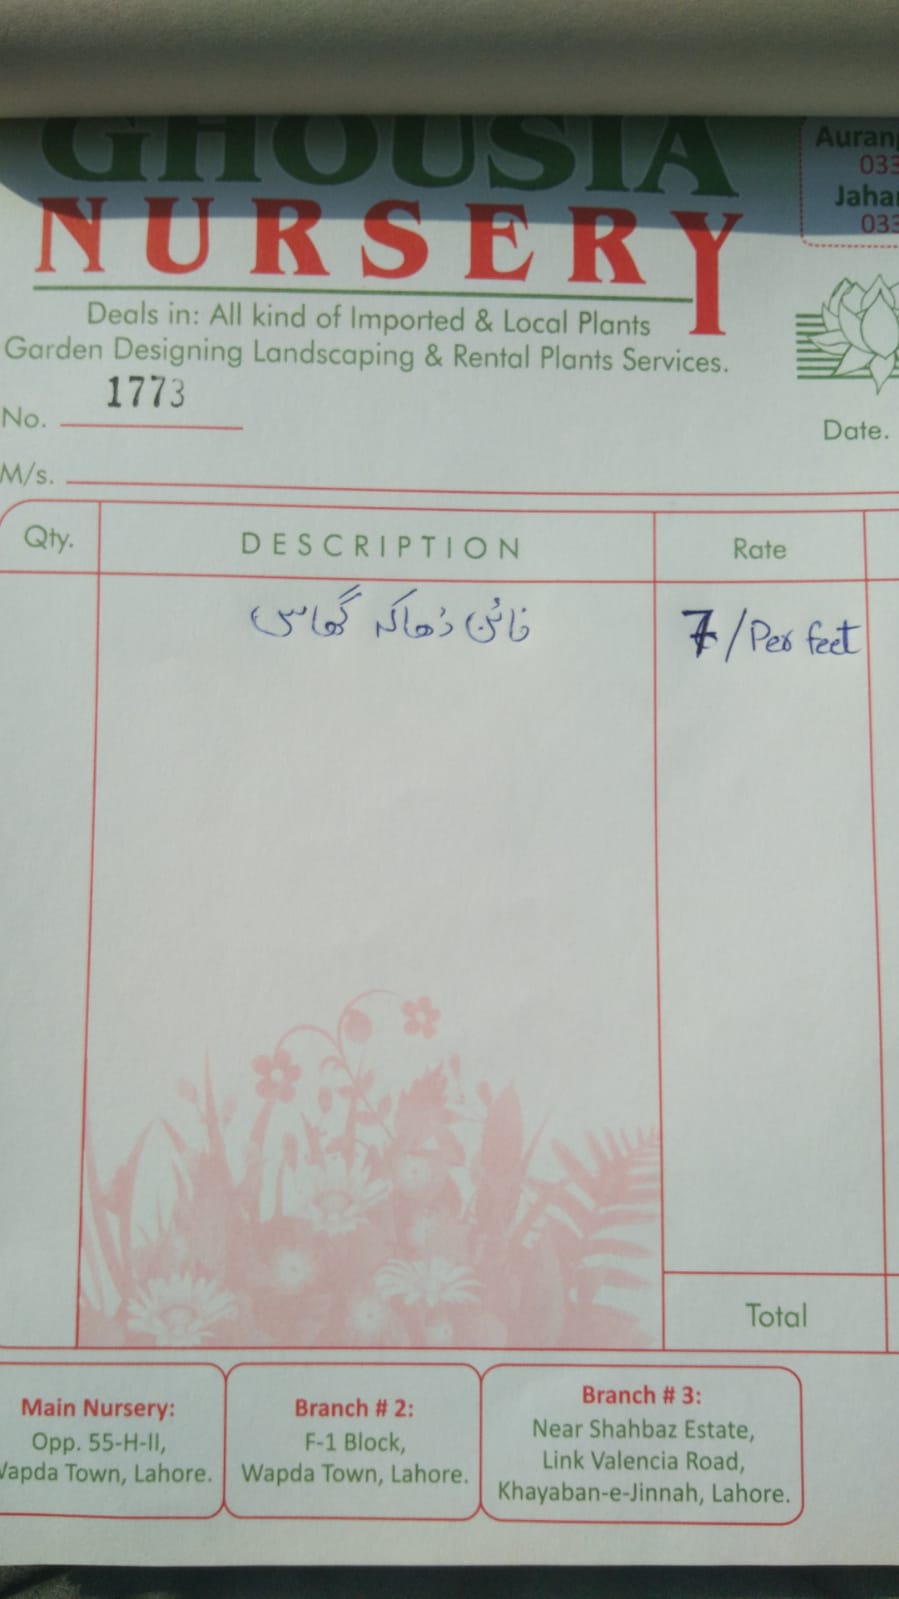 GHOUSIA
NURSERY
Deals in: All kind of Imported & Local Plants
Garden Designing Landscaping & Rental Plants Services.
033
033
No. 1773
Date.
M/s.
Qty. DESCRIPTION Rate
فائن ڈھاکہ گھاس 7/Per feet
Total
Main Nursery:
Opp. 55-H-II,
Wapda Town, Lahore.
Branch # 2:
F-1 Block,
Wapda Town, Lahore.
Branch # 3:
Near Shahbaz Estate,
Link Valencia Road,
Khayaban-e-Jinnah, Lahore.